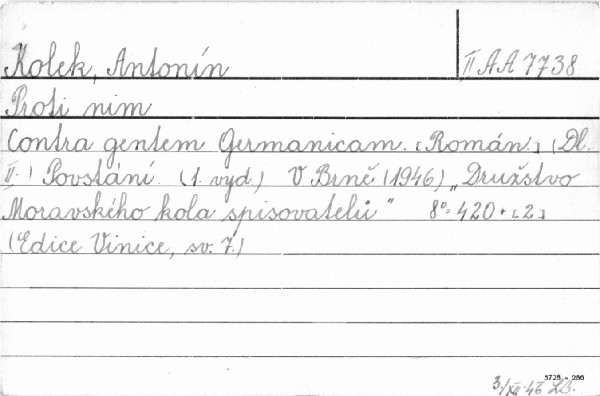 Kolek, Antonín
II AA 7738
Proti nim
Contra gentem Germanicam. [Román.] (Dl.
II.) Povstání. (1. vyd.) V Brně (1946) „Družstvo
Moravského kola spisovatelů" 8°= 420 + [2]
(Edice Vinice, sv. 7.)
5728 - 286
3/XII-46 LB.